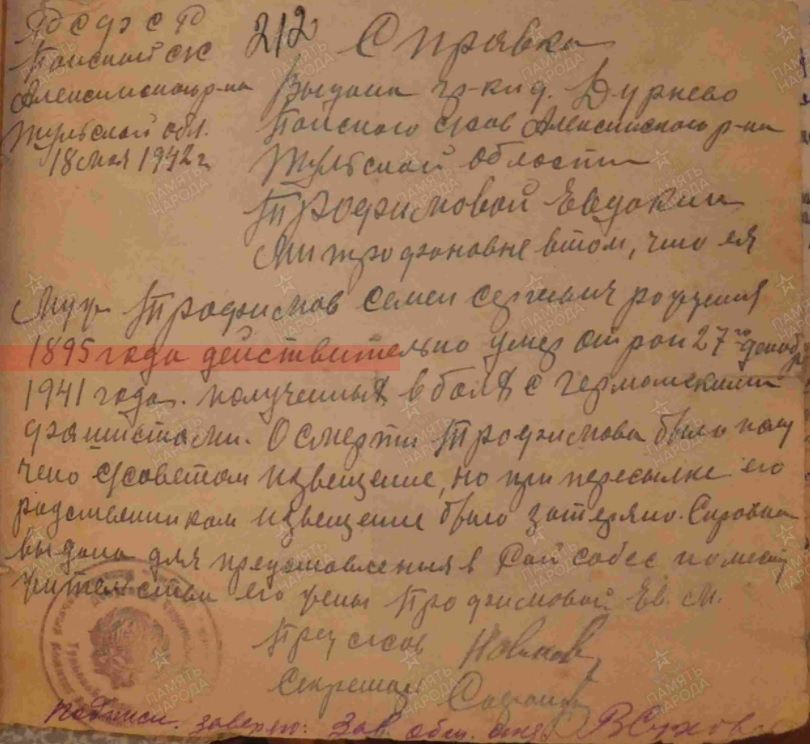 РСФСР
Поповский с/с
Алексинского р-на
Тульской обл.
18 мая 1942 г
212 Справка
Выдана гр-ки д. Дурнево
сов Алексинского р-на
Тульской области
Трофимовой Евдокии
Митрофановне в том, что ея
Муж Трофимов Семен Сергеевич рождения
1895 года действительно умер от ран 27го декабр
1941 года. полученных в боях с германскими
фашистами. О смерти Трофимова было полу
чено с/советом извещение, но при пересылке его
родственникам извещение было затеряно. Справка
выдана для представления в Рай собес по месту
жительства его жены Трофимовой Ев. М.
Пред с/сов
Секретарь
Подписи заверяю: Зав. общ.
ПАМЯТЬ НАРОДА